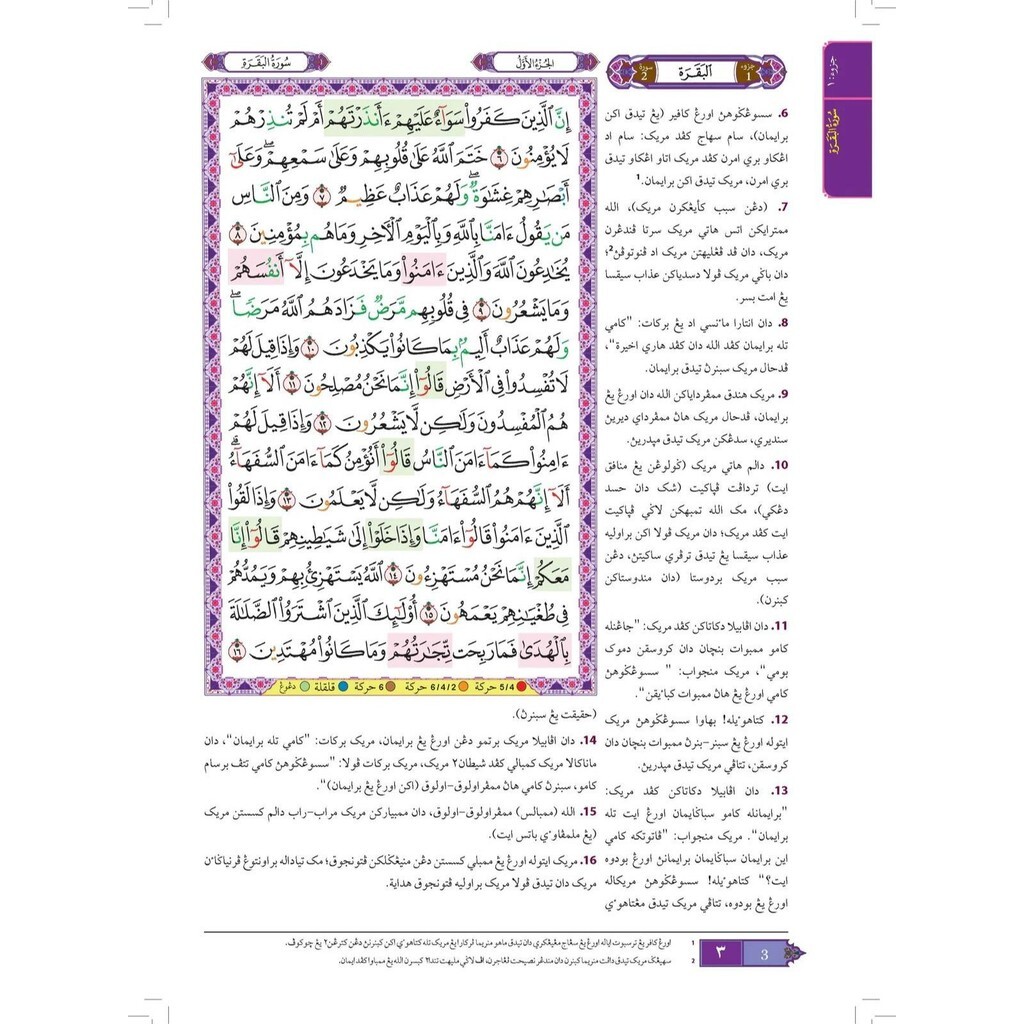 سُورَةُ البَقَرَةِ
الجُزْءُ الأَوَّلُ
سورة 2
البَقَرَة
جزوء 1
جزوء: ١
سُورَةُ البَقَرَة
إِنَّ ٱلَّذِينَ كَفَرُوا۟ سَوَآءٌ عَلَيْهِمْ ءَأَنذَرْتَهُمْ أَمْ لَمْ تُنذِرْهُمْ
لَا يُؤْمِنُونَ ٦ خَتَمَ ٱللَّهُ عَلَىٰ قُلُوبِهِمْ وَعَلَىٰ سَمْعِهِمْ ۖ وَعَلَىٰٓ
أَبْصَٰرِهِمْ غِشَٰوَةٌ ۖ وَلَهُمْ عَذَابٌ عَظِيمٌ ٧ وَمِنَ ٱلنَّاسِ
مَن يَقُولُ ءَامَنَّا بِٱللَّهِ وَبِٱلْيَوْمِ ٱلْءَاخِرِ وَمَا هُم بِمُؤْمِنِينَ ٨
يُخَٰدِعُونَ ٱللَّهَ وَٱلَّذِينَ ءَامَنُوا۟ وَمَا يَخْدَعُونَ إِلَّآ أَنفُسَهُمْ
وَمَا يَشْعُرُونَ ٩ فِى قُلُوبِهِم مَّرَضٌ فَزَادَهُمُ ٱللَّهُ مَرَضًا ۖ
وَلَهُمْ عَذَابٌ أَلِيمٌۢ بِمَا كَانُوا۟ يَكْذِبُونَ ١٠ وَإِذَا قِيلَ لَهُمْ
لَا تُفْسِدُوا۟ فِى ٱلْأَرْضِ قَالُوٓا۟ إِنَّمَا نَحْنُ مُصْلِحُونَ ١١ أَلَآ إِنَّهُمْ
هُمُ ٱلْمُفْسِدُونَ وَلَٰكِن لَّا يَشْعُرُونَ ١٢ وَإِذَا قِيلَ لَهُمْ
ءَامِنُوا۟ كَمَآ ءَامَنَ ٱلنَّاسُ قَالُوٓا۟ أَنُؤْمِنُ كَمَآ ءَامَنَ ٱلسُّفَهَآءُ ۗ
أَلَآ إِنَّهُمْ هُمُ ٱلسُّفَهَآءُ وَلَٰكِن لَّا يَعْلَمُونَ ١٣ وَإِذَا لَقُوا۟
ٱلَّذِينَ ءَامَنُوا۟ قَالُوٓا۟ ءَامَنَّا وَإِذَا خَلَوْا۟ إِلَىٰ شَيَٰطِينِهِمْ قَالُوٓا۟ إِنَّا
مَعَكُمْ إِنَّمَا نَحْنُ مُسْتَهْزِءُونَ ١٤ ٱللَّهُ يَسْتَهْزِئُ بِهِمْ وَيَمُدُّهُمْ
فِى طُغْيَٰنِهِمْ يَعْمَهُونَ ١٥ أُو۟لَٰٓئِكَ ٱلَّذِينَ ٱشْتَرَوُا۟ ٱلضَّلَٰلَةَ
بِٱلْهُدَىٰ فَمَا رَبِحَت تِّجَٰرَتُهُمْ وَمَا كَانُوا۟ مُهْتَدِينَ ١٦
5/4 حركة 6/4/2 حركة 6 حركة قلقلة دڠوڠ
6. سسوڠݢوهڽ اورڠ كافير (يڠ تيدق اكن
برايمان)، سام سهاج كڤد مريك: سام اد
اڠكاو بري امرن كڤد مريك اتاو اڠكاو تيدق
بري امرن، مريك تيدق اكن برايمان.1
7. (دڠن سبب كأيڠكرن مريك)، الله
ممترايكن اتس هاتي مريك سرتا ڤندڠرن
مريك، دان ڤد ڤڠليهتن مريك اد ڤنوتوڤڽ2؛
دان باݢي مريك ڤولا دسدياكن عذاب سيقسا
يڠ امت بسر.
8. دان انتارا مأنسي اد يڠ بركات: "كامي
تله برايمان كڤد الله دان كڤد هاري اخيرة"،
ڤدحال مريك سبنرڽ تيدق برايمان.
9. مريك هندق ممڤرداياكن الله دان اورڠ يڠ
برايمان، ڤدحال مريك هاڽ ممڤرداي ديريڽ
سنديري، سدڠكن مريك تيدق مڽدريڽ.
10. دالم هاتي مريك (ݢولوڠن يڠ منافق
ايت) تردافت ڤڽاكيت (شك دان حسد
دڠكي)، مك الله تمبهكن لاݢي ڤڽاكيت
ايت كڤد مريك؛ دان مريك ڤولا اكن براوليه
عذاب سيقسا يڠ تيدق ترڤري ساكيتڽ، دڠن
سبب مريك بردوستا (دان مندوستاكن
كبنرن).
11. دان اڤابيلا دكاتاكن كڤد مريك: "جاڠنله
كامو ممبوات بنچان دان كروسقن دموك
بومي"، مريك منجواب: "سسوڠݢوهڽ
كامي اورڠ يڠ هاڽ ممبوات كبايقن".
12. كتاهوءيله! بهاوا سسوڠݢوهڽ مريك
ايتوله اورڠ يڠ سبنر-بنرڽ ممبوات بنچان دان
كروسقن، تتاڤي مريك تيدق مڽدريڽ.
13. دان اڤابيلا دكاتاكن كڤد مريك:
"برايمانله كامو سباݢايمان اورڠ ايت تله
برايمان". مريك منجواب: "ڤاتوتكه كامي
اين برايمان سباݢايمان برايمانڽ اورڠ بودوه
ايت؟" كتاهوءيله! سسوڠݢوهڽ مريكاله
اورڠ يڠ بودوه، تتاڤي مريك تيدق مڠتاهوءي
(حقيقت يڠ سبنرڽ).
14. دان اڤابيلا مريك برتمو دڠن اورڠ يڠ برايمان، مريك بركات: "كامي تله برايمان"، دان
ماناكالا مريك كمبالي كڤد شيطان٢ مريك، مريك بركات ڤولا: "سسوڠݢوهڽ كامي تتڤ برسام
كامو، سبنرڽ كامي هاڽ ممڤراولوق-اولوق (اكن اورڠ يڠ برايمان)".
15. الله (ممبالس) ممڤراولوق-اولوق، دان ممبياركن مريك مراب-راب دالم كسستن مريك
(يڠ ملمڤاوءي باتس ايت).
16. مريك ايتوله اورڠ يڠ ممبلي كسستن دڠن منيڠݢلكن ڤتونجوق؛ مك تياداله براونتوڠ ڤرنياݢاءن
مريك دان تيدق ڤولا مريك براوليه ڤتونجوق هداية.
1 اورڠ كافر يڠ ترسبوت اياله اورڠ يڠ سڠاج مڠيڠكري دان تيدق ماهو منريما ڤركارا يڠ مريك تله كتاهوءي اكن كبنرنڽ دڠن كترڠن٢ يڠ چوكوڤ.
2 سهيڠݢ مريك تيدق داڤت منريما كبنرن دان مندڠر نصيحت ڤڠاجرن، اڤ لاݢي مليهت تندا٢ كبسرن الله يڠ ممباوا كڤد ايمان.
٣
3